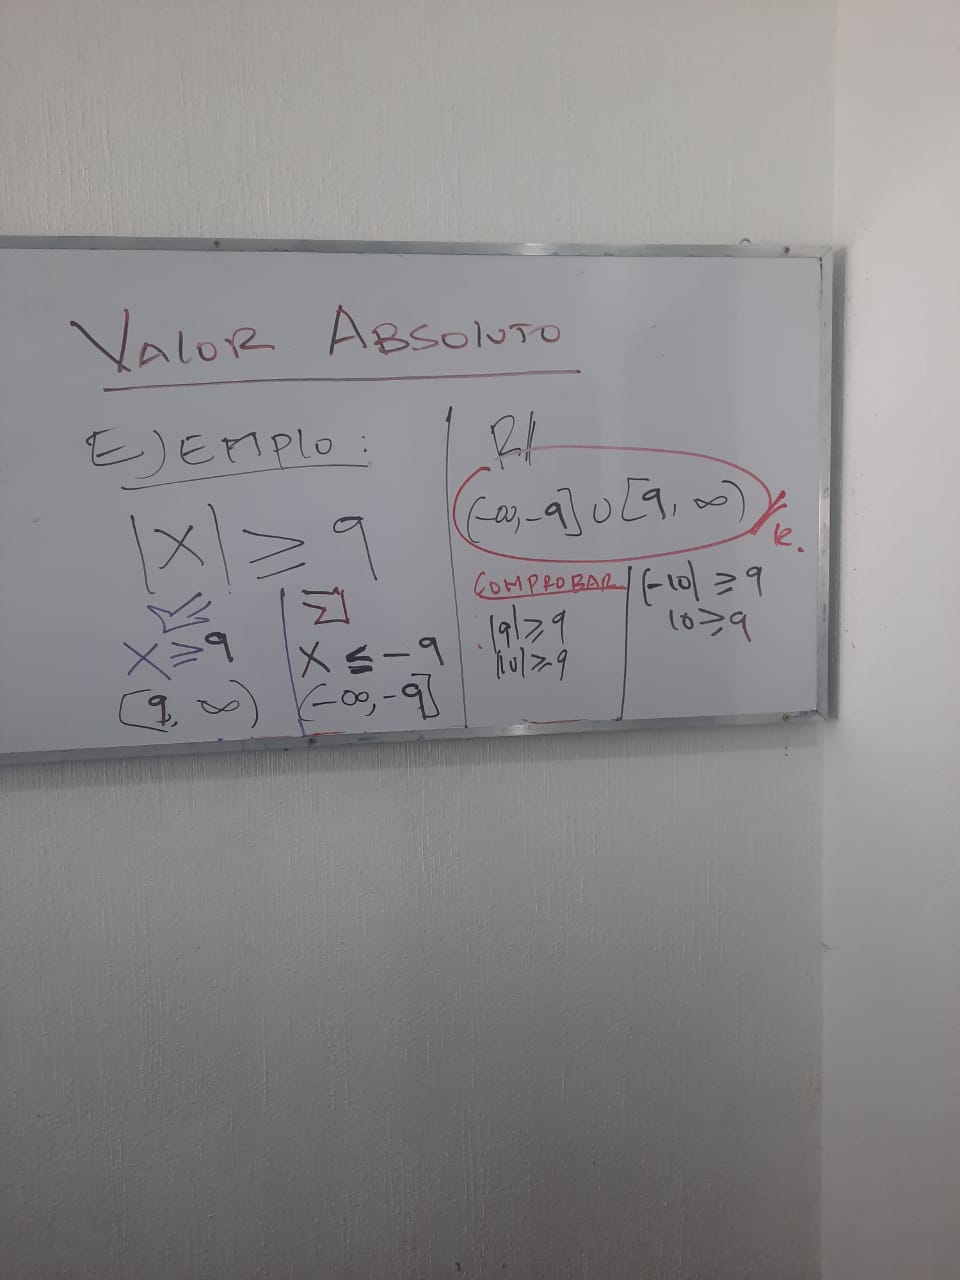 VALOR ABSOLUTO
EJEMPLO:
|X| ≥ 9
X ≥ 9
[9, ∞)
X ≤ -9
(-∞, -9]
R//
(-∞, -9] ∪ [9, ∞)
R.
COMPROBAR
|9| ≥ 9
|10| ≥ 9
|-10| ≥ 9
10 ≥ 9